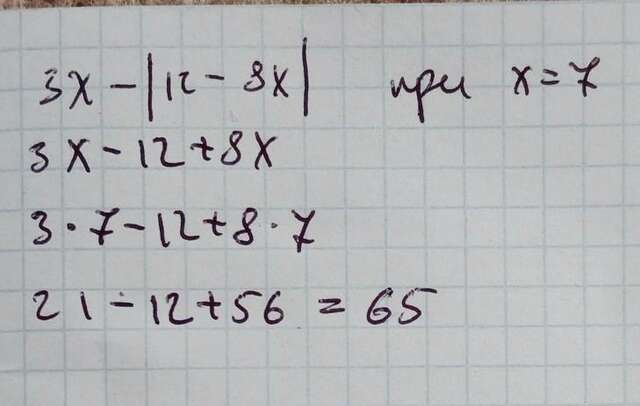 3x - |12 - 8x| при x = 7
3x - 12 + 8x
3 · 7 - 12 + 8 · 7
21 - 12 + 56 = 65